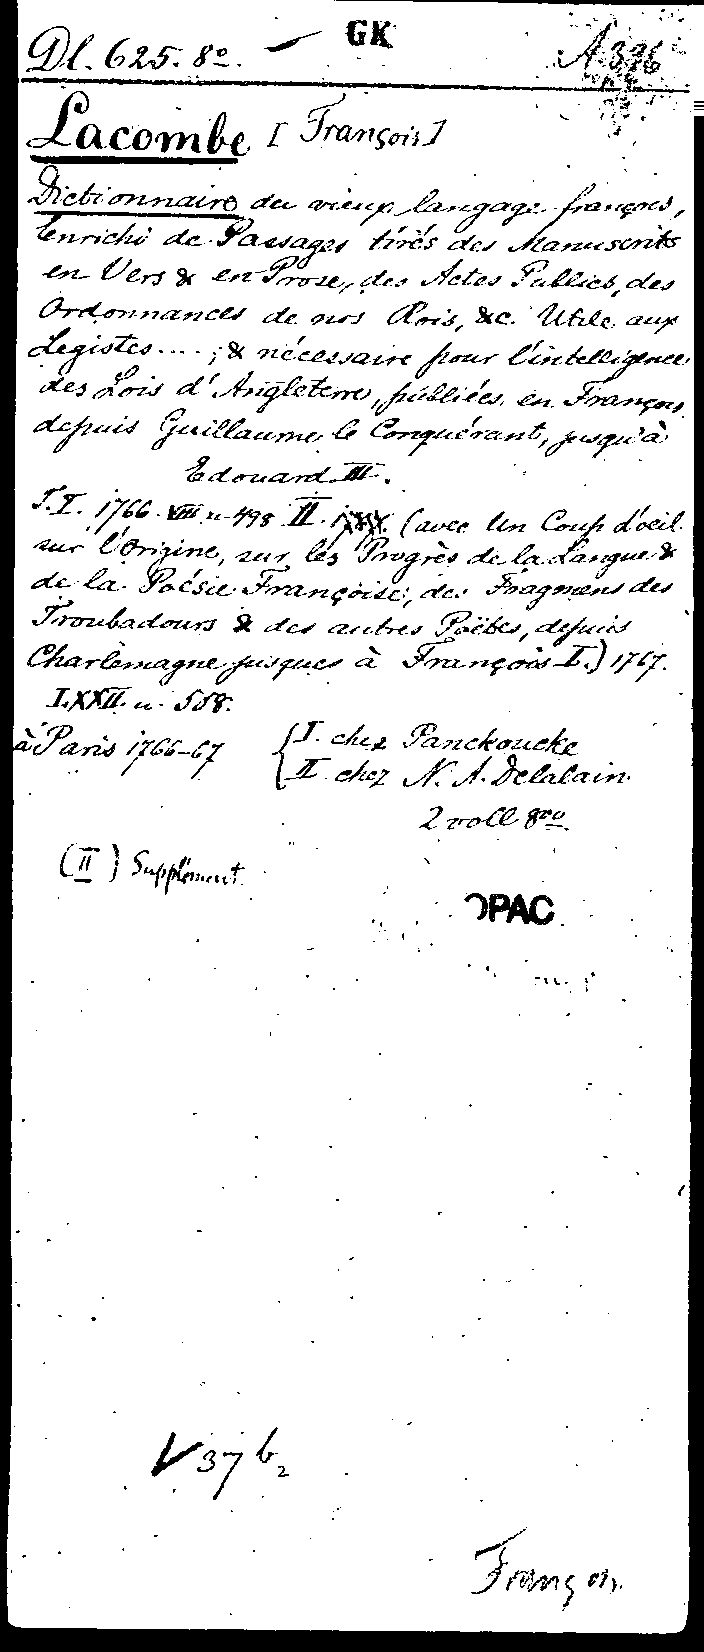 Dl. 625. 8o. — GK A 396
Lacombe [François]
Dictionnaire du vieux langage françois,
Enrichi de Passages tirés des Manuscrits
en Vers & en Prose, des Actes Publics, des
Ordonnances de nos Rois, &c. Utile aux
Legistes....; & nécessaire pour l'intelligence
des Lois d'Angleterre, publiées en François
depuis Guillaume le Conquérant, jusqu'à
Edouard III.
T.I. 1766. VIII u 498 II. (avec Un Coup d'oeil
sur l'Origine, sur les Progrès de la Langue &
de la Poésie Françoise, des Fragmens des
Troubadours & des autres Poëtes, depuis
Charlemagne jusques à François I.) 1767.
LXXII. u. 558.
à Paris 1766-67 { I. chez Panckoucke
II chez N. A. Delalain
2 voll 8vo
(II) Supplément
OPAC
V 37 b2
François.